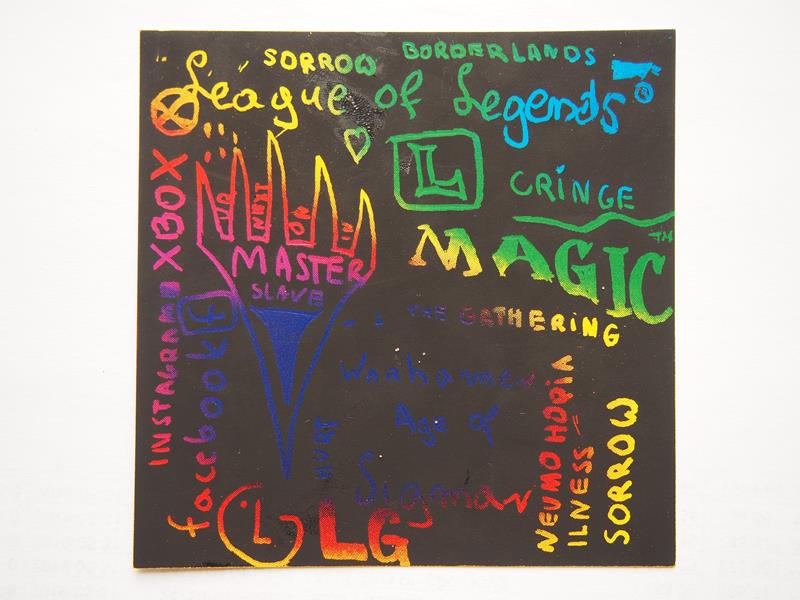 SORROW
BORDERLANDS
League of Legends®
L
CRINGE
MAGIC™
THE GATHERING
XBOX
NEXT
ON
IN
MASTER
SLAVE
INSTAGRAM
facebook f
HURT
Warhammer
Age of
Sigmar
NEUMO HOPIA
ILNESS
SORROW
L
LG